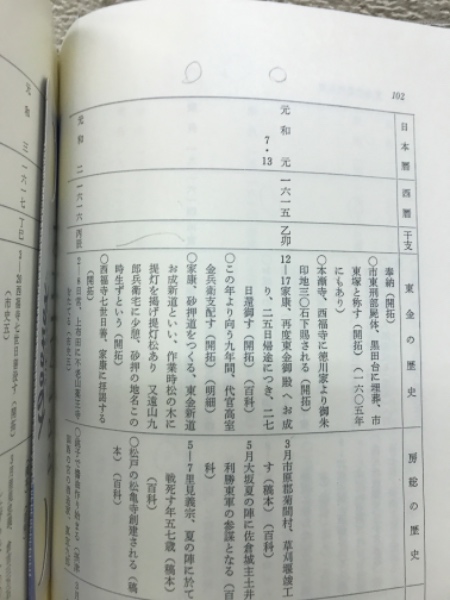 102
日本暦
西暦
干支
東金の歴史
房総の歴史
奉納(開拓)
○市東刑部屍体、黒田台に埋葬、市
東塚と称す(開拓)(一六〇五年
にもあり)
○本漸寺、西福寺に徳川家より御朱
印地三〇石下賜される(開拓)
元和元
7・13
一六一五
乙卯
12-17家康、再度東金御殿へお成
り、二五日帰途につき、二七
日還御す(開拓)(百科)
○この年より向う九年間、代官高室
金兵衛支配す(開拓)(明細)
○家康、砂押道をつくる、東金新道
お成新道といい、作業時松の木に
提灯を掲げ提灯松あり 又遠山九
郎兵衛宅に少憩、砂押の地名この
時生ずという(開拓)
○西福寺七世日善、家康に拝謁する
(開拓)
3月市原郡菊間村、草刈堰竣工
す(稿本)(百科)
5月大坂夏の陣に佐倉城主土井
利勝東軍の参謀となる(百
科)
5-7里見義宗、夏の陣に於て
戦死す年五七歳(稿本)
(百科)
○松戸の松亀寺創建される(稿
本)(百科)
元和二
一六一六
丙辰
元和三
一六一七
丁巳
3-20西福寺七世日善寂す(開拓)
(市史五)